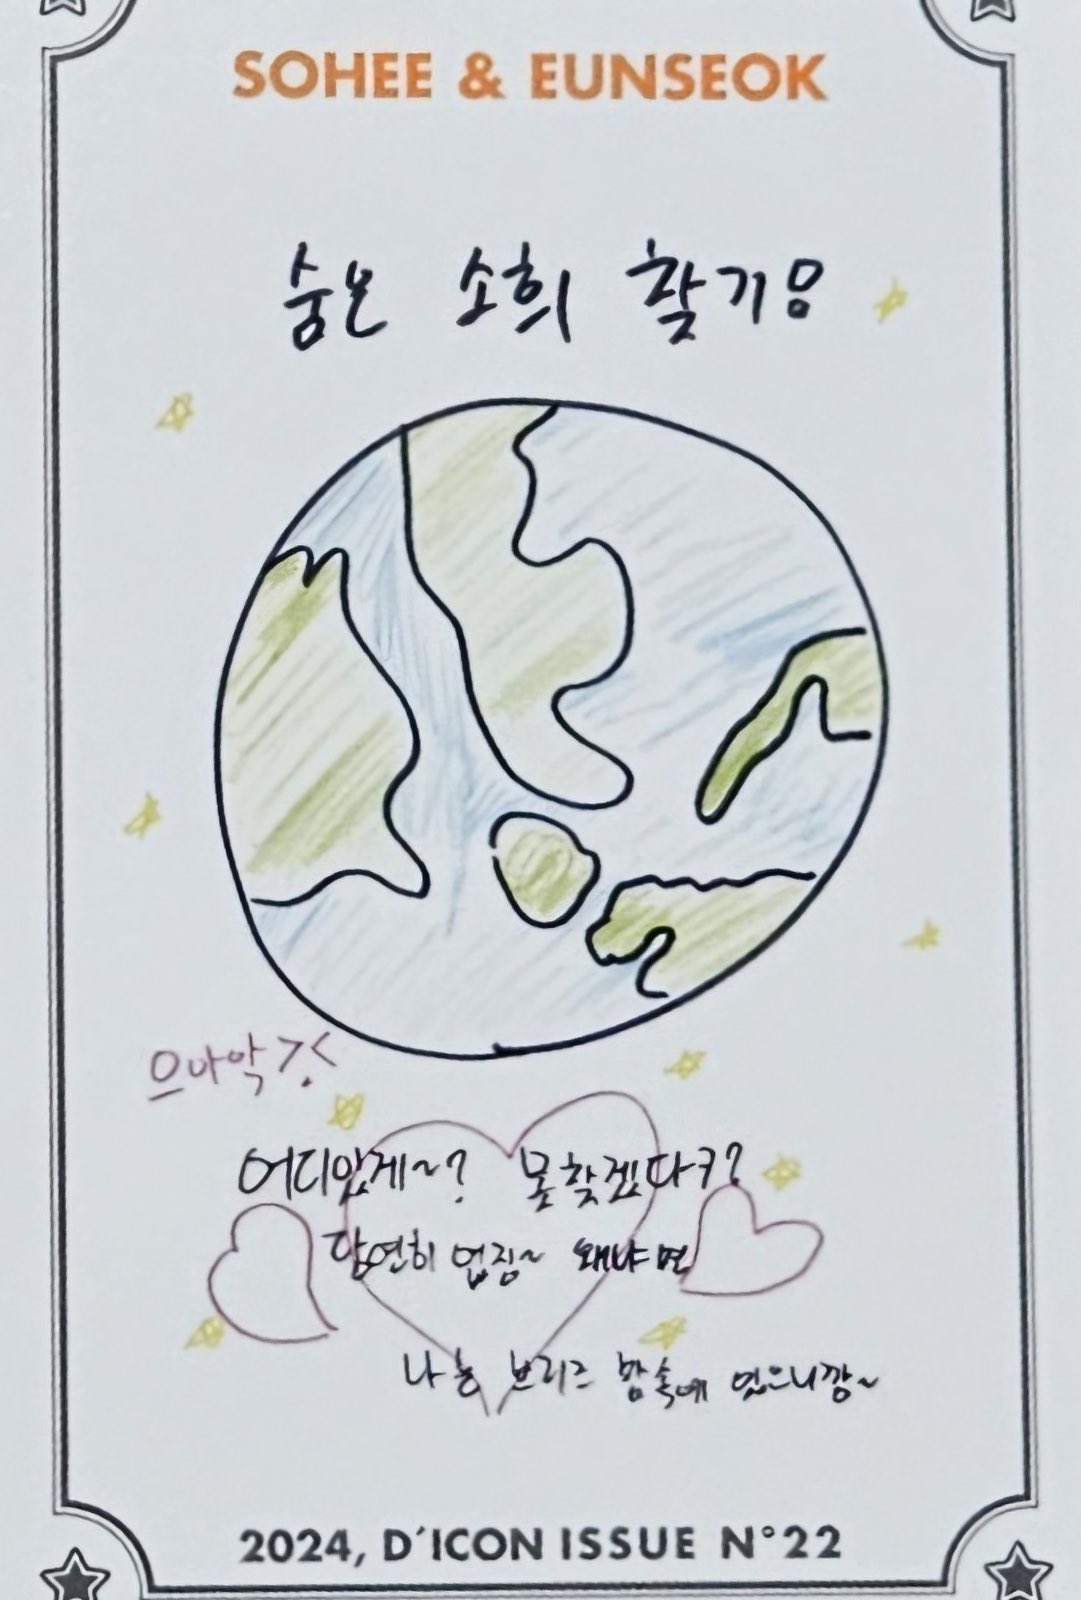 SOHEE & EUNSEOK
숨은 소희 찾기용
으아악 >.<
어디있게~? 못찾겠다구?
당연히 업징~ 왜냐면
나는 브리즈 맘속에 있으니깡~
2024, D'ICON ISSUE N°22